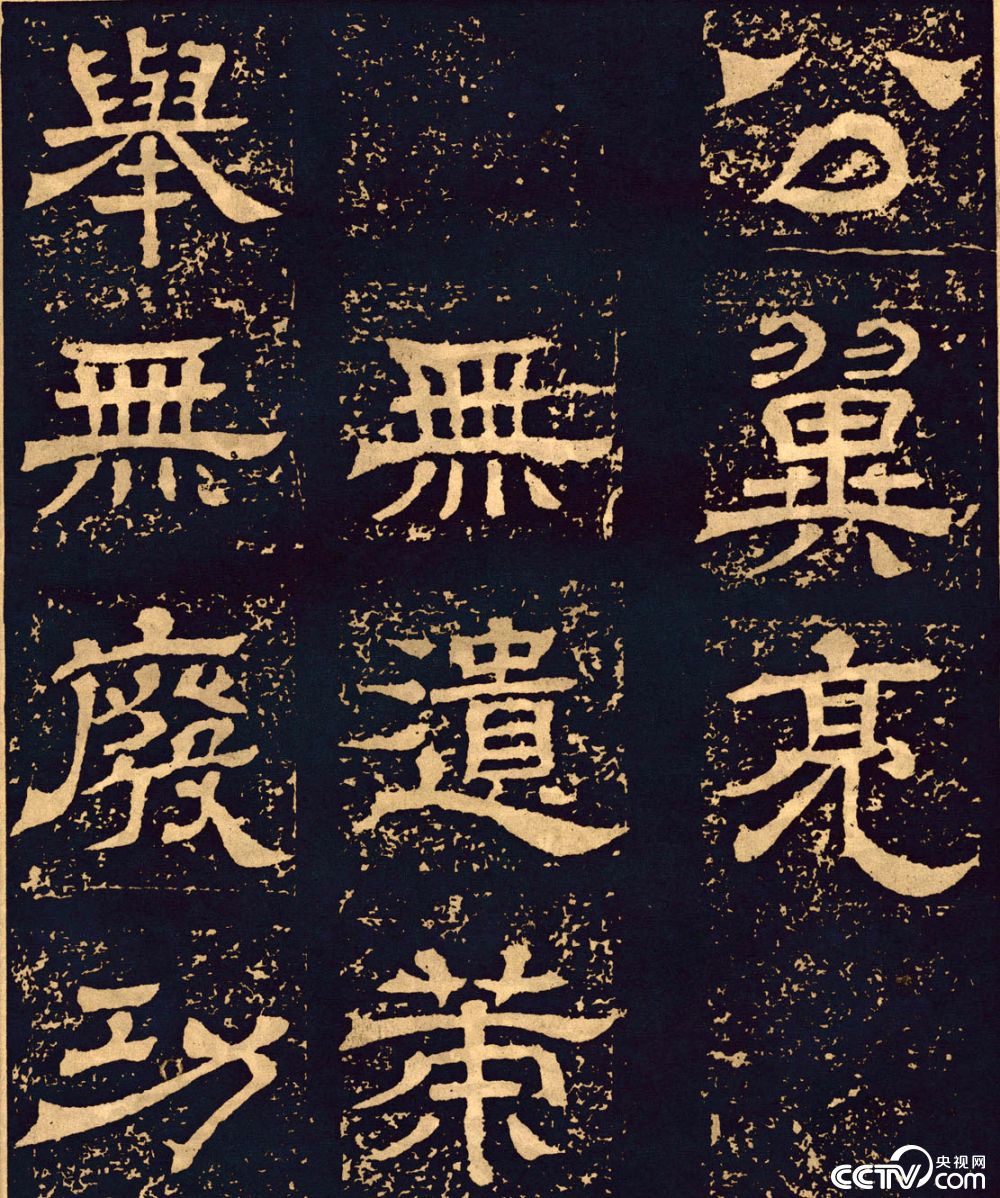 公翼亮
無遺策
舉無廢功
央视网
CCTV.com